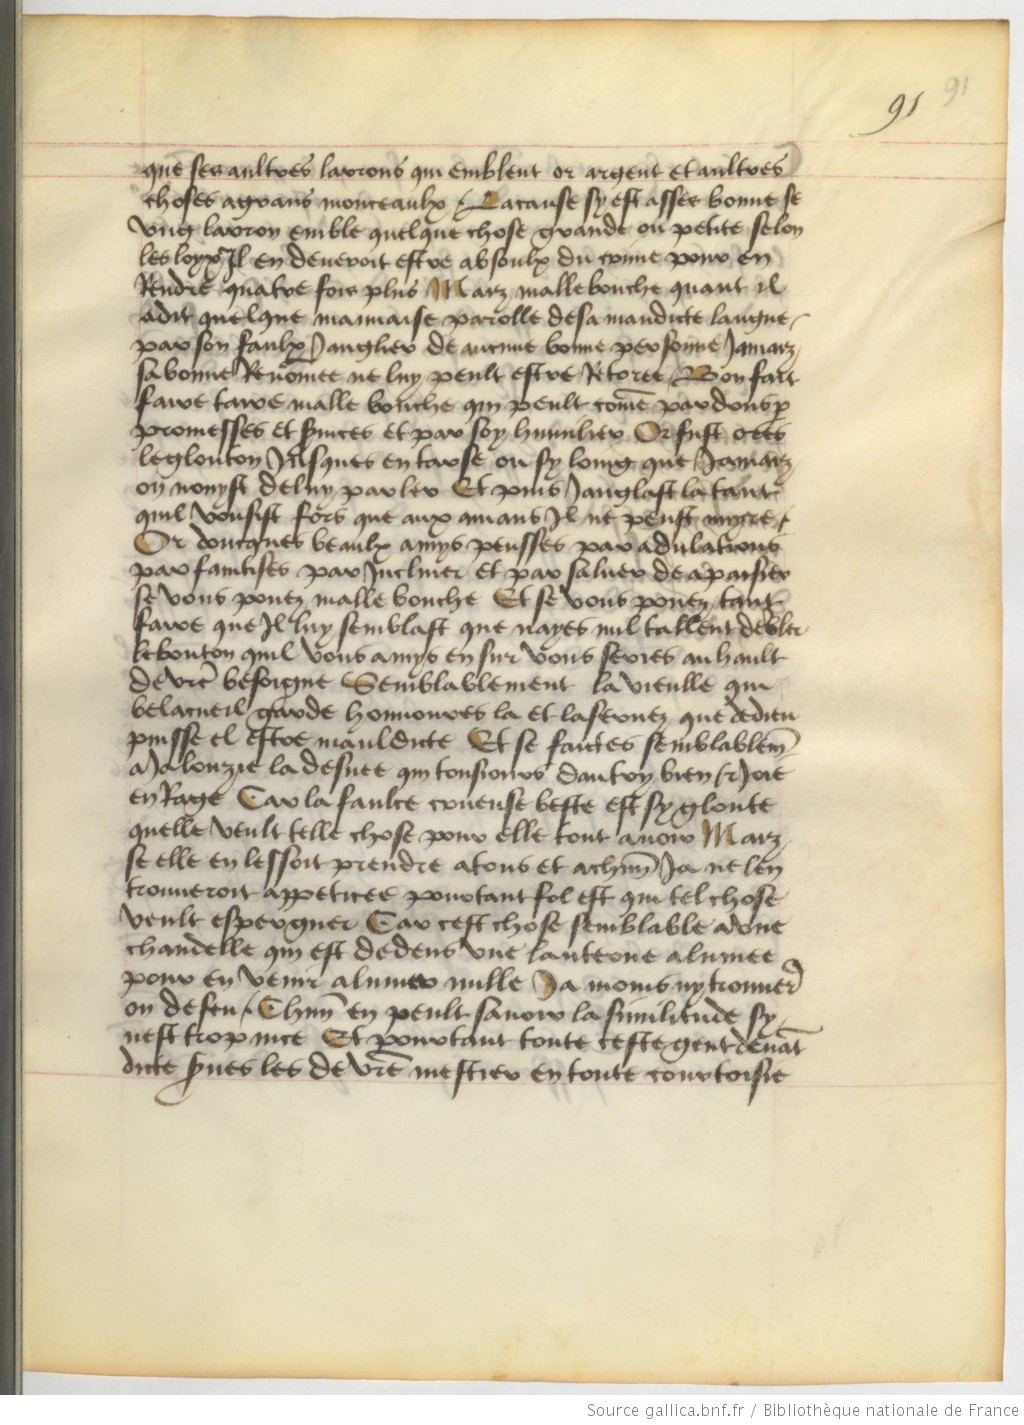 91 91
que ses aultres larrons qui emblent or argent et aultres
choses a grans monceaulx / La cause sy est asses bonne se
ung larron emble quelque chose grande ou petite selon
les loyx Il en deveroit estre absoulx du crime pour en
Rendre quatre fois plus Marz malle bouche quant il
a dit quelque mauvaise parolle de sa maudicte langue /
par son faulx Janglier de aucune bonne personne Jamaiz
sa bonne Renomee ne luy peult estre Retoree / Bon fait
faire taire malle bouche qui peult come par dons p
promesses et services et par soy humilier Or fust ores
le glouton Jusques en tarse ou sy loing que Jamaiz
on nouyst de luy parler Et puis Janglast la tant
quil vousist fors que aux amans Il ne peust /
Or doncques beaulx amys pensses par adulations
par faintises par Incliner et par saluer de apaisier
se vous pouez malle bouche Et se vous pouez tant
faire que Il luy semblast que nayes nul tallent dembler
le bouton quil vous a mys en sur vous series au hault
de vre besoigne Semblablement la vieulle qui
belacueil garde honnoures la et la servez que de dieu
puisse el estre mauldicte Et se faictes semblablem
a Jalouzie la desvee qui tousiours dautry bien
en Rage Car la faulce crueuse beste est sy gloute
quelle veult telle chose pour elle tout avoir Marz
se elle en lessoit prendre a tous et a chun Ja ne len
trouveroit appeticee pourtant fol est qui tel chose
veult espergner Car cest chose semblable a une
chandelle qui est dedens une lanterne alumee
pour en venir alumer mille Ja moins ny trouver
on de feu / Chun en peult savoir la similitude sy
nest trop nice Et pourtant toute ceste gent devat
dicte serves les de vre mestier en toute courtoisie
Source gallica.bnf.fr / Bibliothèque nationale de France